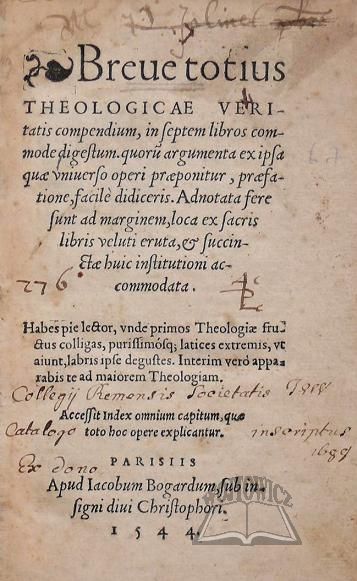 Breue totius
THEOLOGICAE VERI-
tatis compendium, in septem libros com-
mode digestum. quorũ argumenta ex ipsa
quæ vniuerso operi præponitur, præfa-
tione, facilè didiceris. Adnotata fere
sunt ad marginem, loca ex sacris
libris veluti eruta, & succin-
ctæ huic institutioni ac-
commodata.
276.
Habes pie lector, vnde primos Theologiæ fru-
ctus colligas, purissimósq; latices extremis, vt
aiunt, labris ipse degustes. Interim verò appa-
rabis te ad maiorem Theologiam.
Collegij Remensis Societatis
Accessit Index omnium capitum, quæ
Catalogo toto hoc opere explicantur. inscriptus
Ex dono
PARISIIS
Apud Iacobum Bogardum, sub in-
signi diui Christophori.
1544.